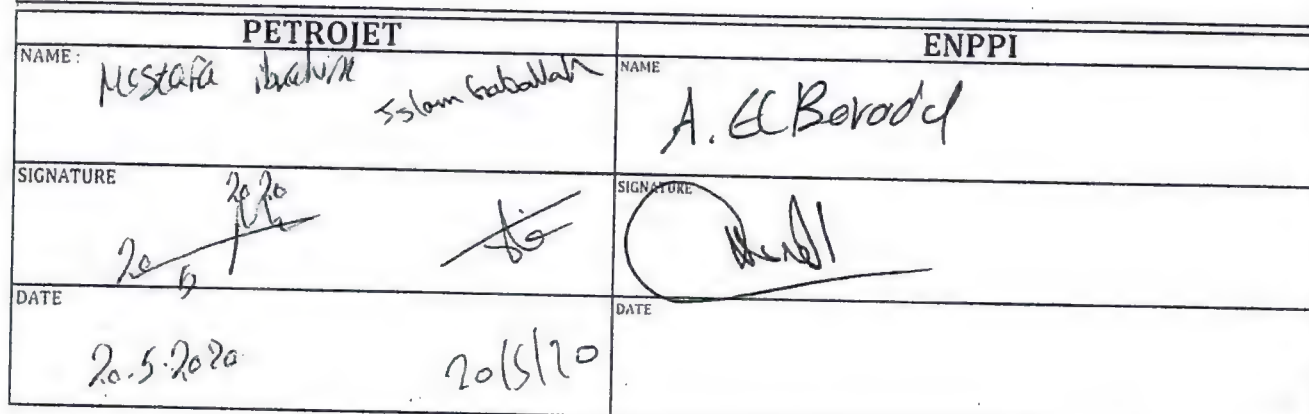 PETROJET
ENPPI
NAME :
Mostafa ibrahim
Islam Gaballah
NAME
A. El
SIGNATURE
20 20
20
5
SIGNATURE
DATE
20.5.2020
20/5/20
DATE